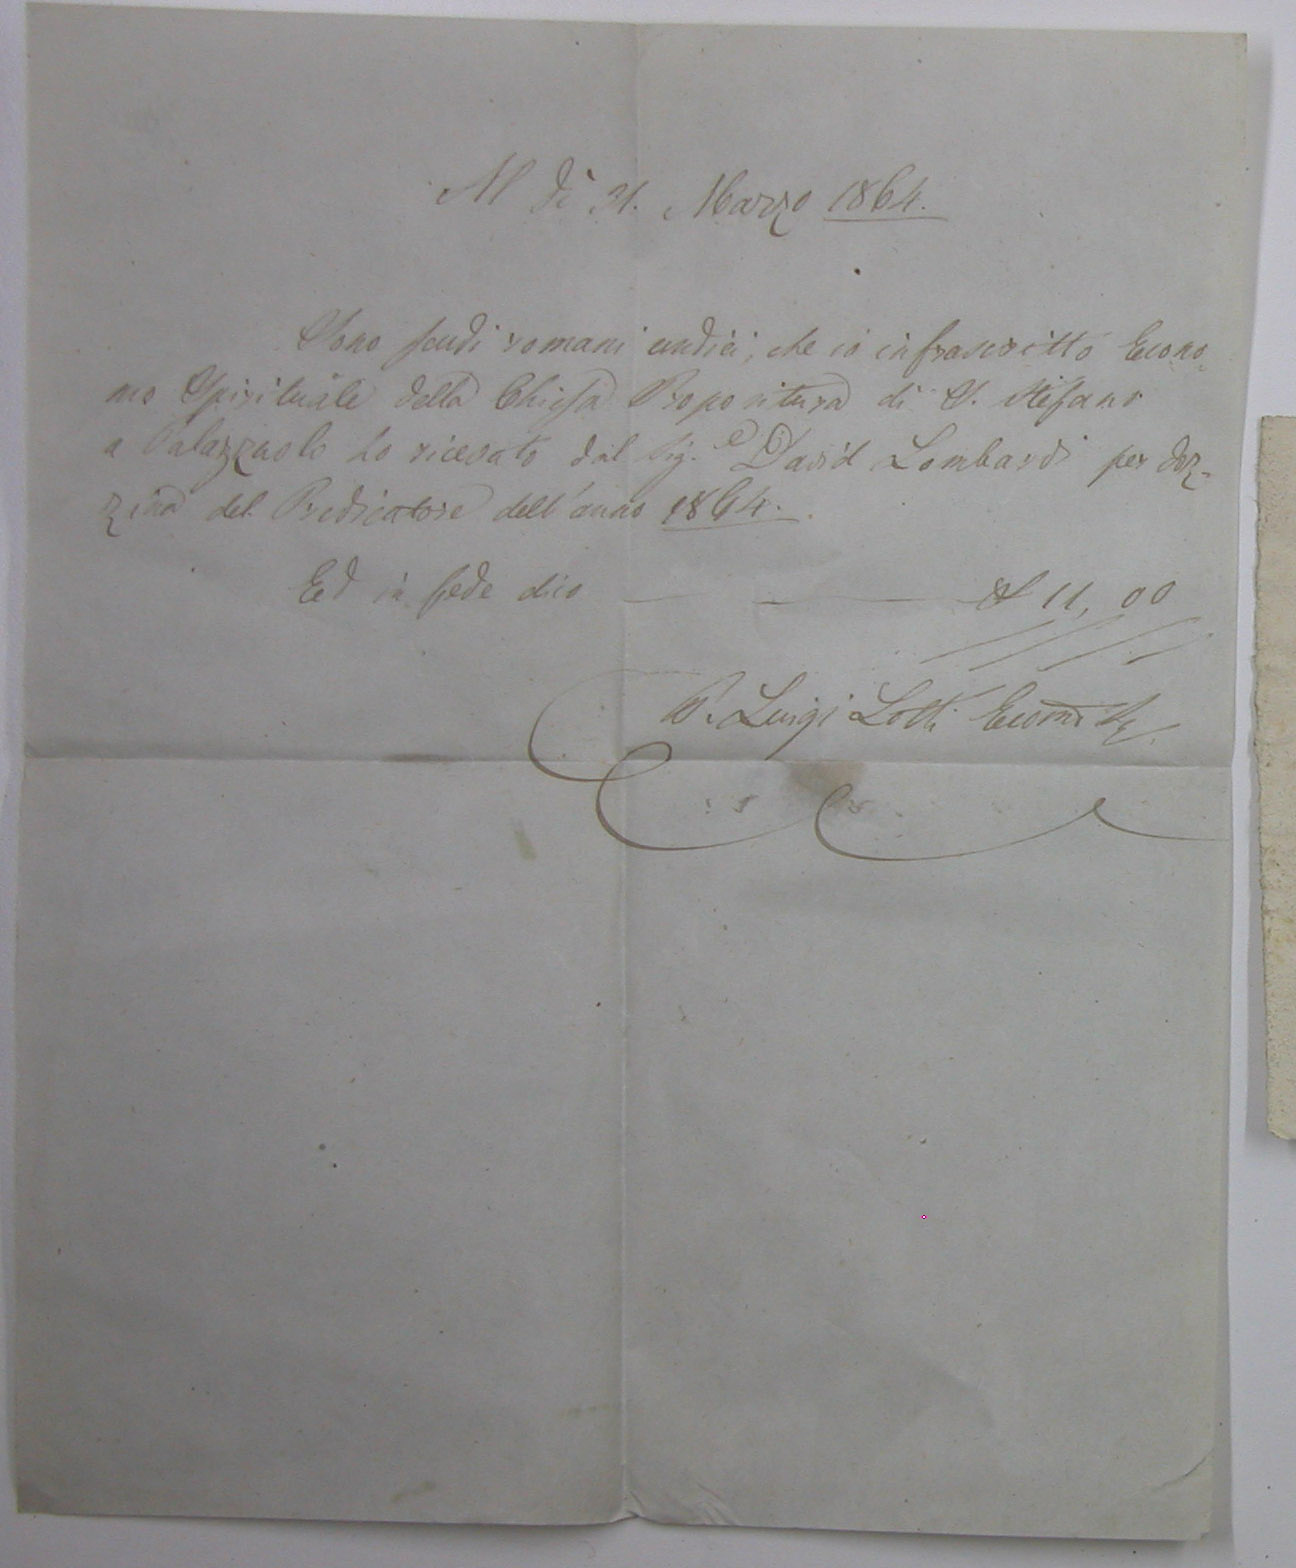 Al dì 31. Marzo 1864.
Sono scudi romani undici, che io infrascritto Econo-
mo Spirituale della Chiesa Propositura di S. Stefano
a Palazzuolo ho ricevuto dal Sig.e David Lombardi per doz-
zina del Predicatore dell'anno 1864.
Ed in fede dico — — — 11,00
P. Luigi Lotti